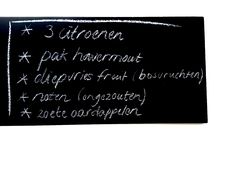 * 3 citroenen
* pak havermout
* diepvries fruit (bosvruchten)
* noten (ongezouten)
* zoete aardappelen